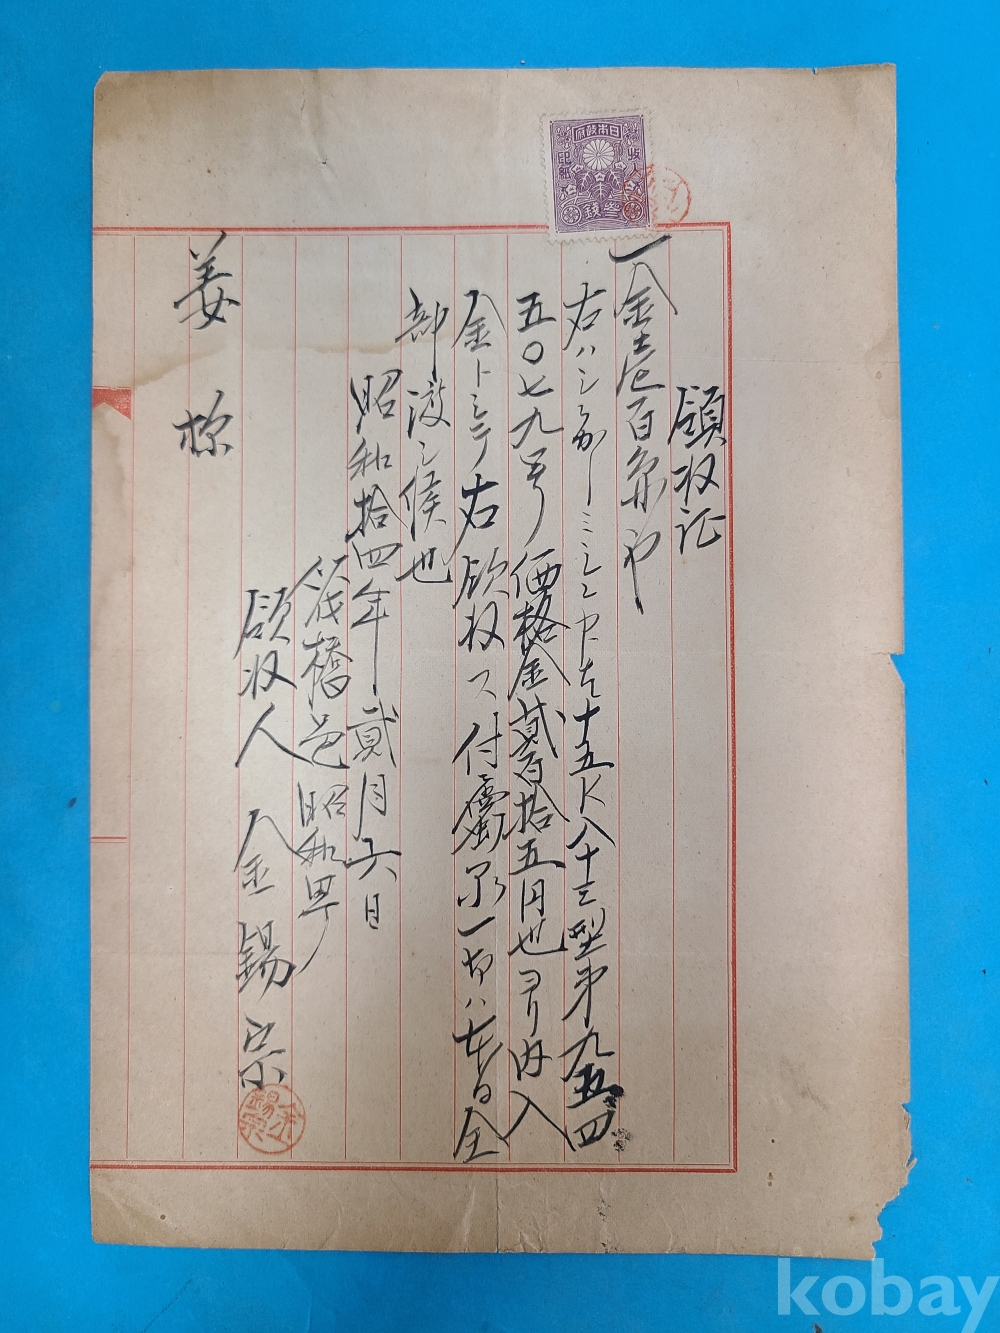 領収証
一金壱百円也
右ハシンガーミシン
十五K八十三型第九五四
五〇七九号 価格金貳百拾五円也ヨリ内入
金トシテ右領収ス付属品一切ハ本日全
部渡シ候也
昭和拾四年貳月六日
筏橋邑昭和町
領収人 金錫宗
姜 様
日本政府
収入
印紙
参銭
金錫宗
kobay